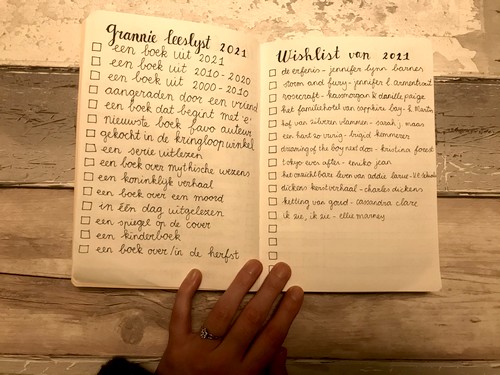 Grannie leeslyst 2021
een boek uit 2021
een boek uit 2010-2020
een boek uit 2000-2010
aangeraden door een vriend
een boek dat begint met 'e'
nieuwste boek favo auteur
gekocht in de kringloopwinkel
een serie uitlezen
een boek over mythische wezens
een koninklijk verhaal
een boek over een moord
in één dag uitgelezen
een spiegel op de cover
een kinderboek
een boek over/in de herfst
Wishlist van 2021
de erfenis - jennifer lynn barnes
storm and fury - jennifer l armentrout
rosecraft - kass morgan & danielle paige
het familiehotel van sapphire bay - k. Martin
hof van zilveren vlammen - sarah j maas
een hart zo vurig - brigid kemmerer
dreaming of the boy next door - kristina forest
tokyo ever after - emiko jean
het onzichtbare leven van addie larue - V.E. Schwab
dickens kerstverhaal - charles dickens
ketting van goud - cassandra clare
ik zie, ik zie - ellie marney